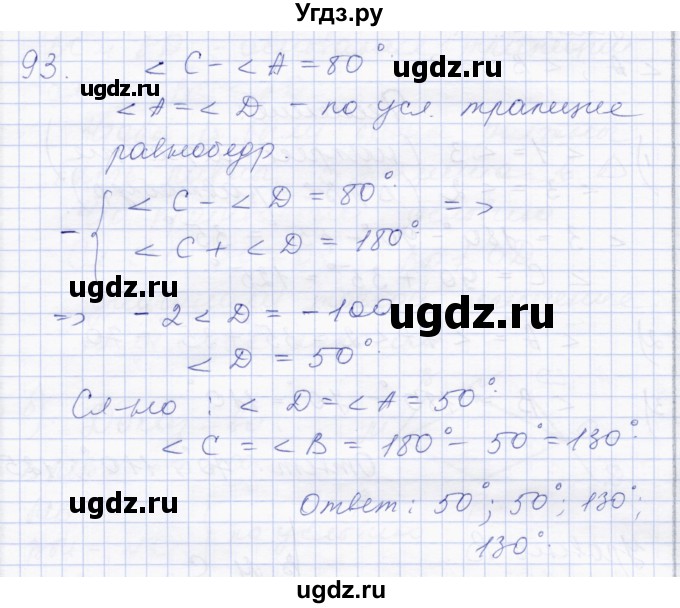 Угдз.ру
93. < C - < A = 80°
ugdz.ru ugdz.ru
< A = < D - по усл. трапеция
равнобедр.
- { < C - < D = 80° =>
< C + < D = 180°
ugdz.ru ugdz.ru
=> - 2 < D = - 100
< D = 50°
Сл-но : < D = < A = 50°
< C = < B = 180° - 50° = 130°
ugdz.ru ugdz.ru
Ответ : 50°; 50°; 130°;
130°.
ugdz.ru